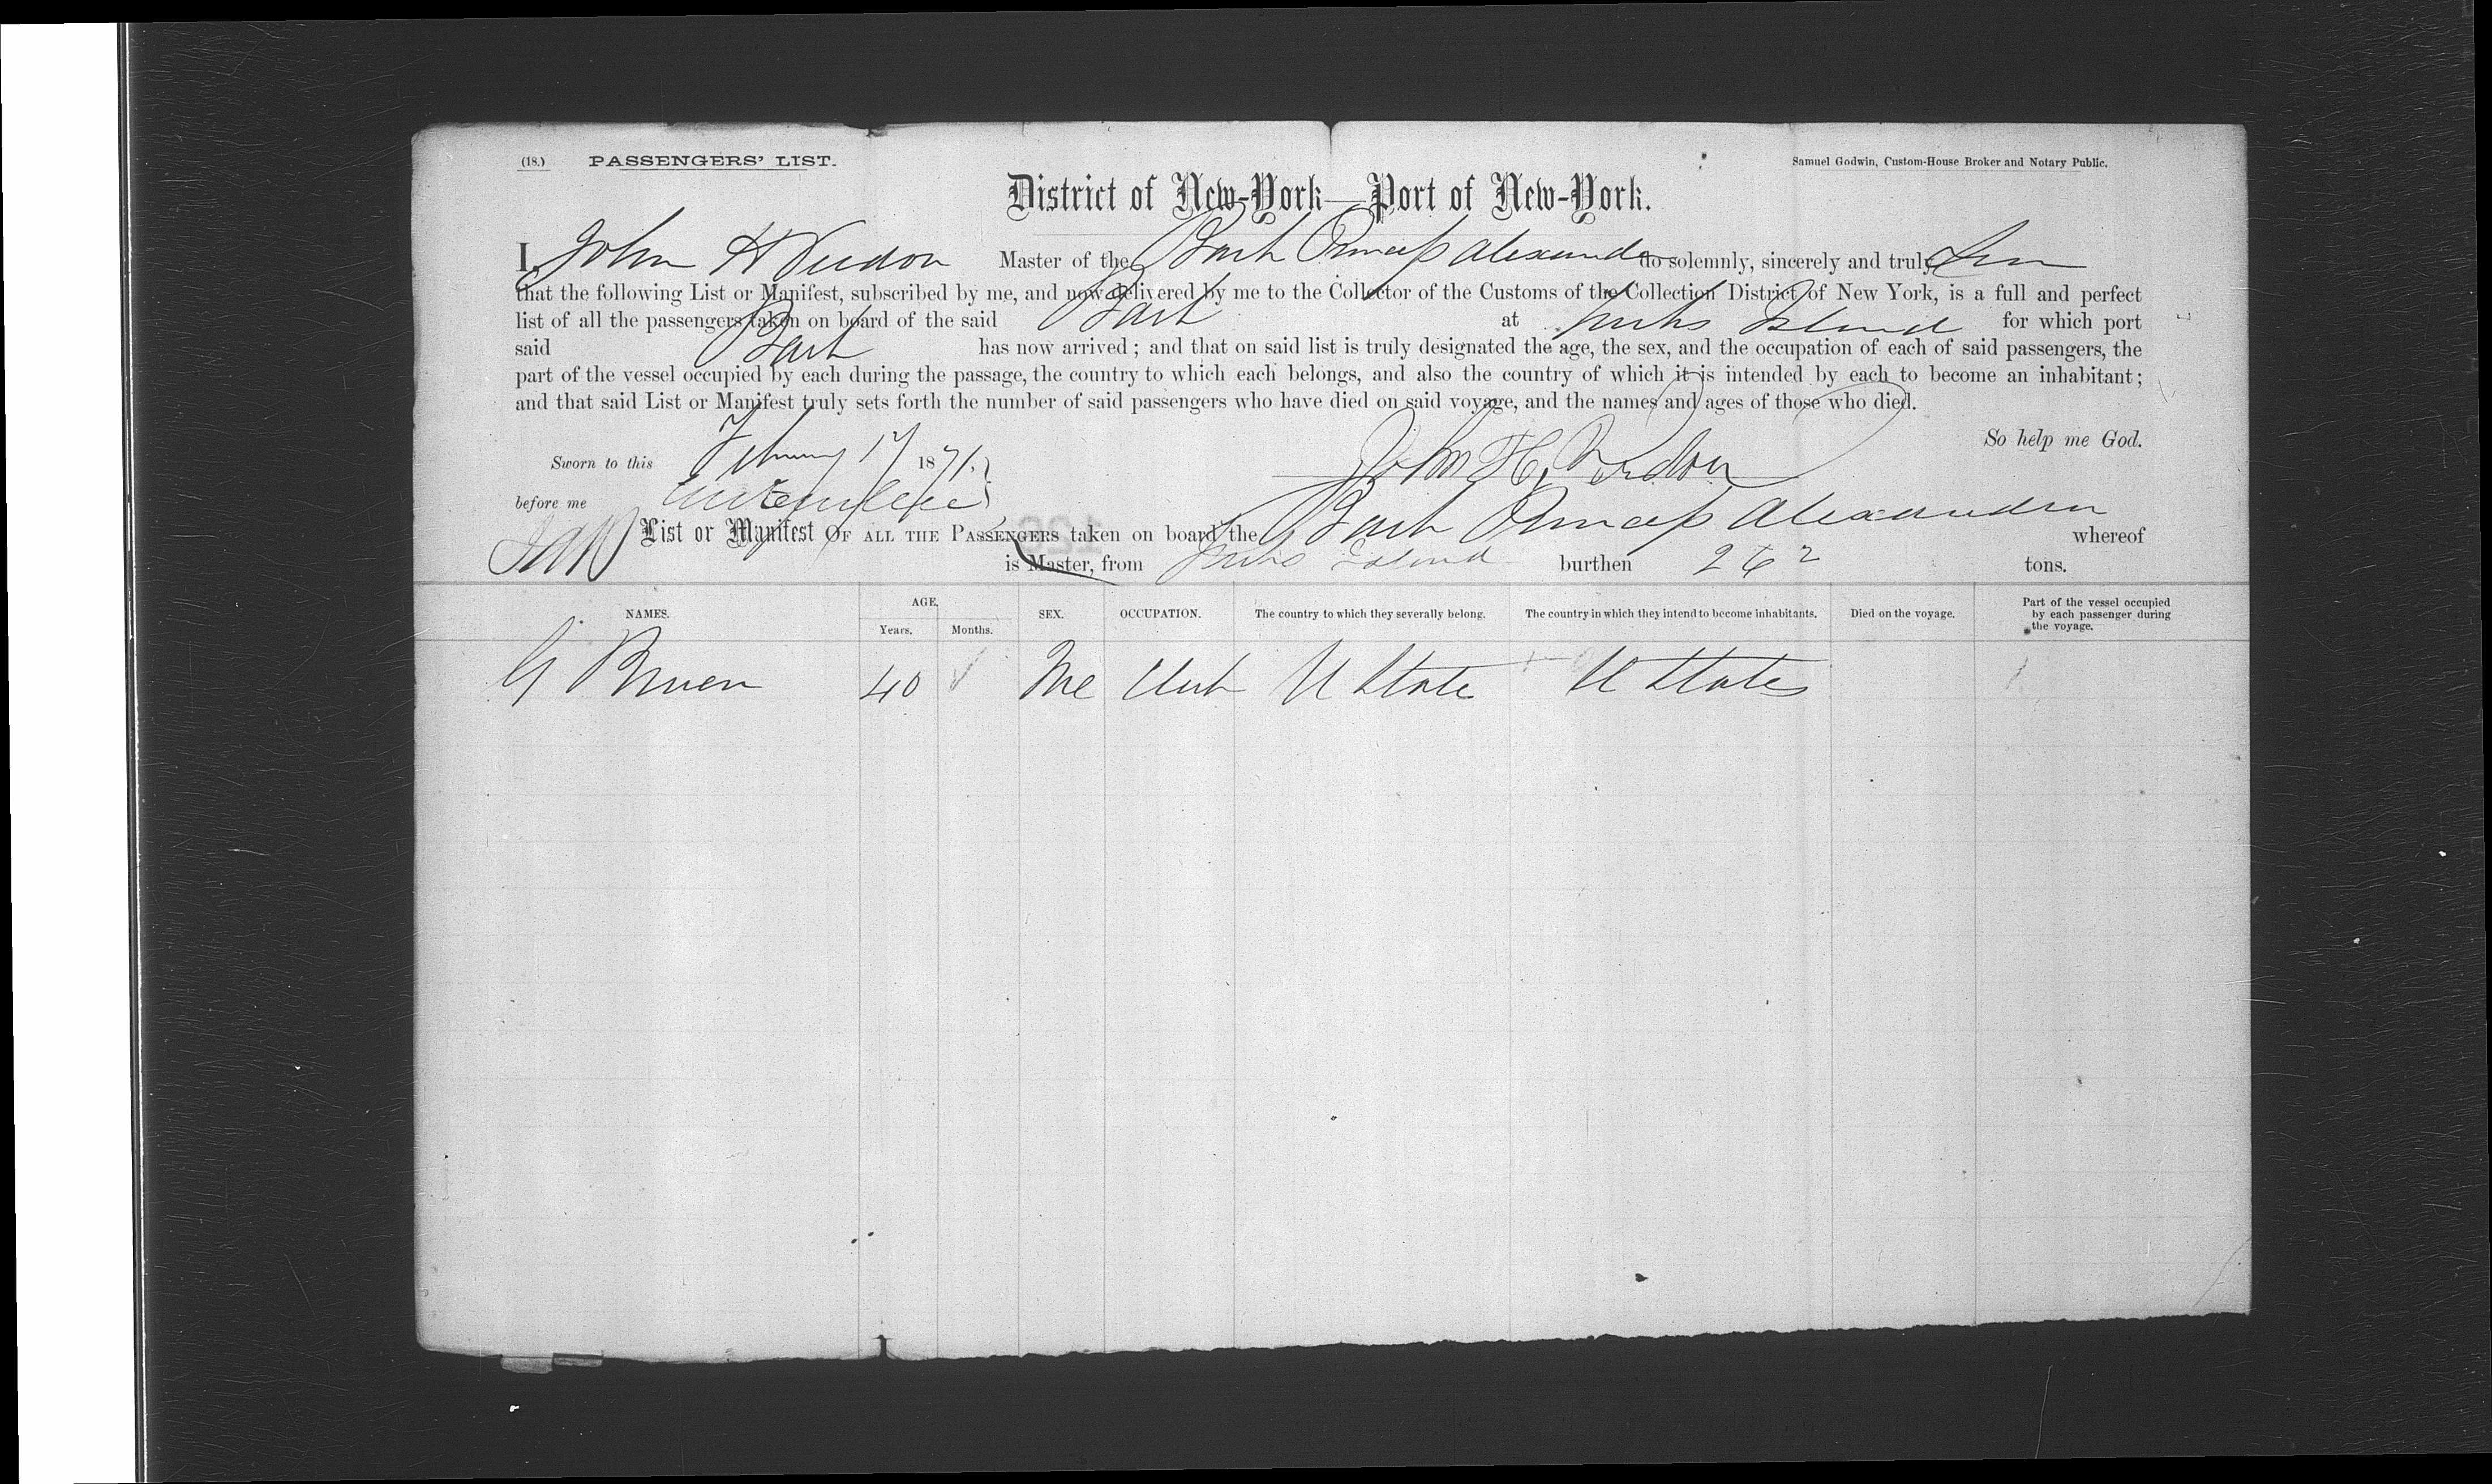 (18.) PASSENGERS' LIST. Samuel Godwin, Custom-House Broker and Notary Public.
District of New-York—Port of New-York.
I, John H Master of the Bark Princess Alexandra do solemnly, sincerely and truly
that the following List or Manifest, subscribed by me, and now delivered by me to the Collector of the Customs of the Collection District of New York, is a full and perfect
list of all the passengers taken on board of the said Bark at Turks Island for which port
said Bark has now arrived; and that on said list is truly designated the age, the sex, and the occupation of each of said passengers, the
part of the vessel occupied by each during the passage, the country to which each belongs, and also the country of which it is intended by each to become an inhabitant;
and that said List or Manifest truly sets forth the number of said passengers who have died on said voyage, and the names and ages of those who died.
So help me God.
Sworn to this February 17 1871. John H.
before me
List or Manifest OF ALL THE PASSENGERS taken on board the Bark Princess Alexandra whereof
is Master, from Turks Island burthen 262 tons.
NAMES. AGE. Years. Months. SEX. OCCUPATION. The country to which they severally belong. The country in which they intend to become inhabitants. Died on the voyage. Part of the vessel occupied by each passenger during the voyage.
G Bruen 40 Me U State U States